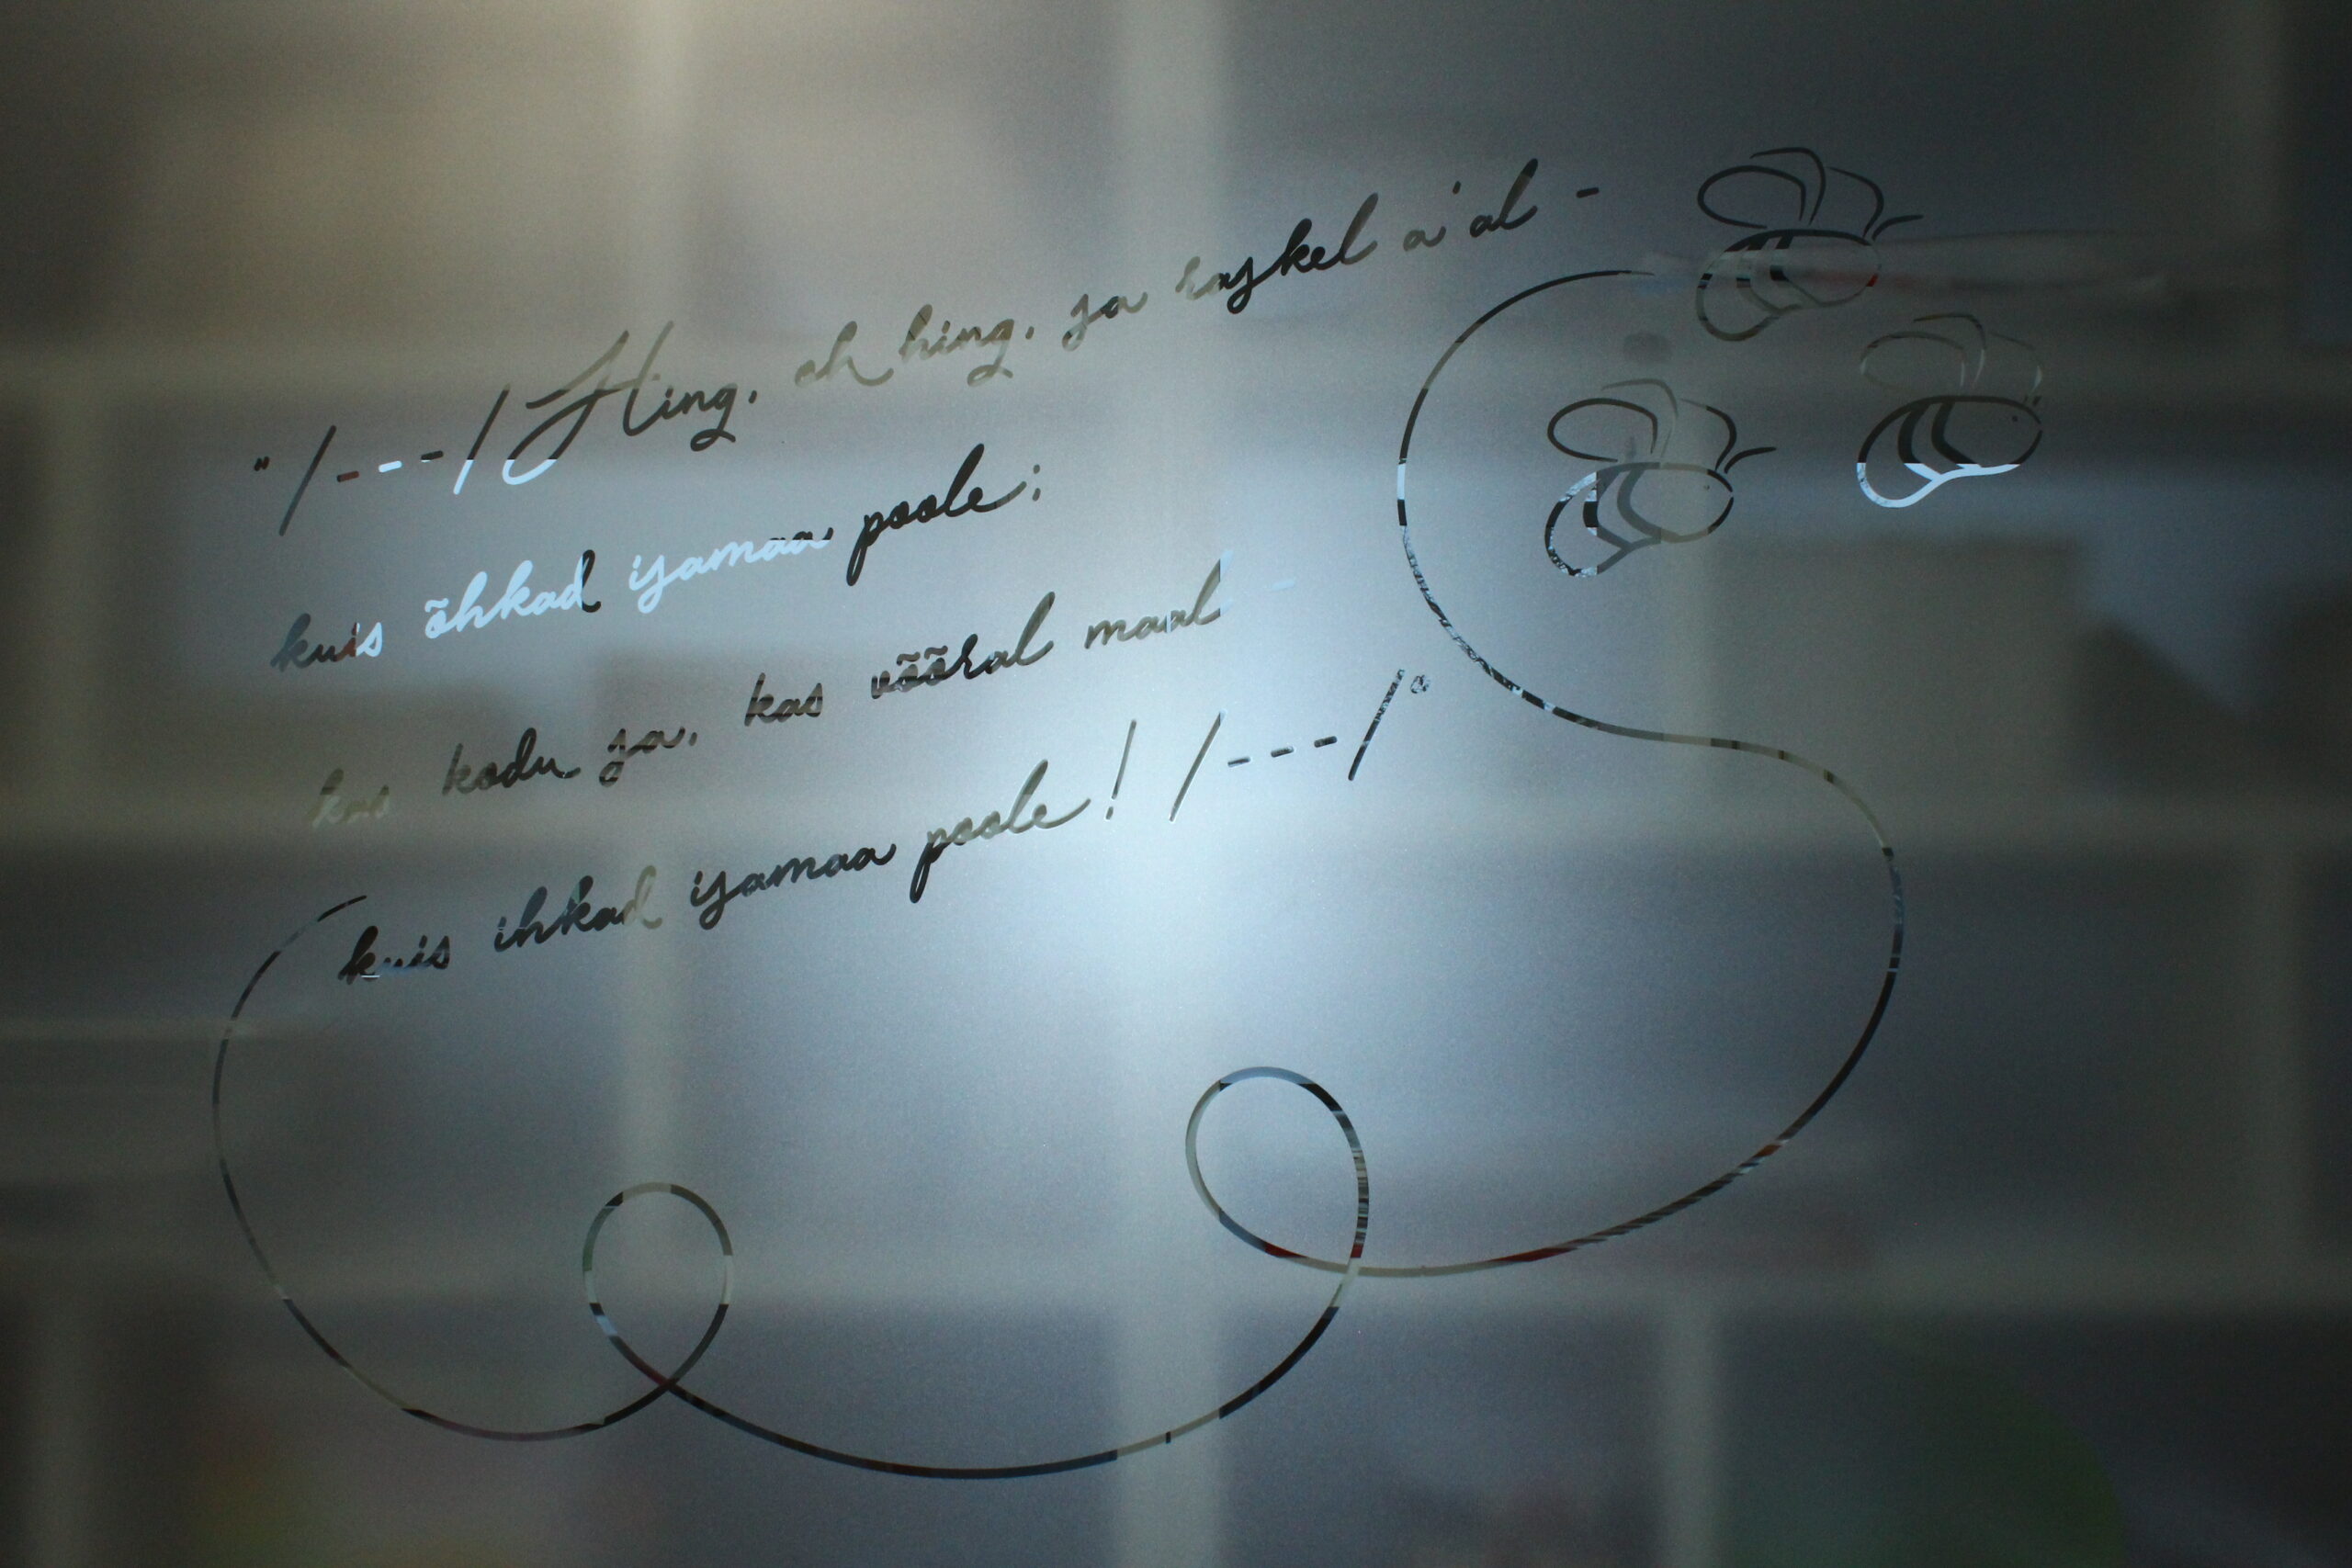 "/---/ Hing, oh hing, sa raskel a'al -
kuis õhkad isamaa poole;
kas kodu sa, kas võõral maal -
kuis ihkad isamaa poole! /---/"